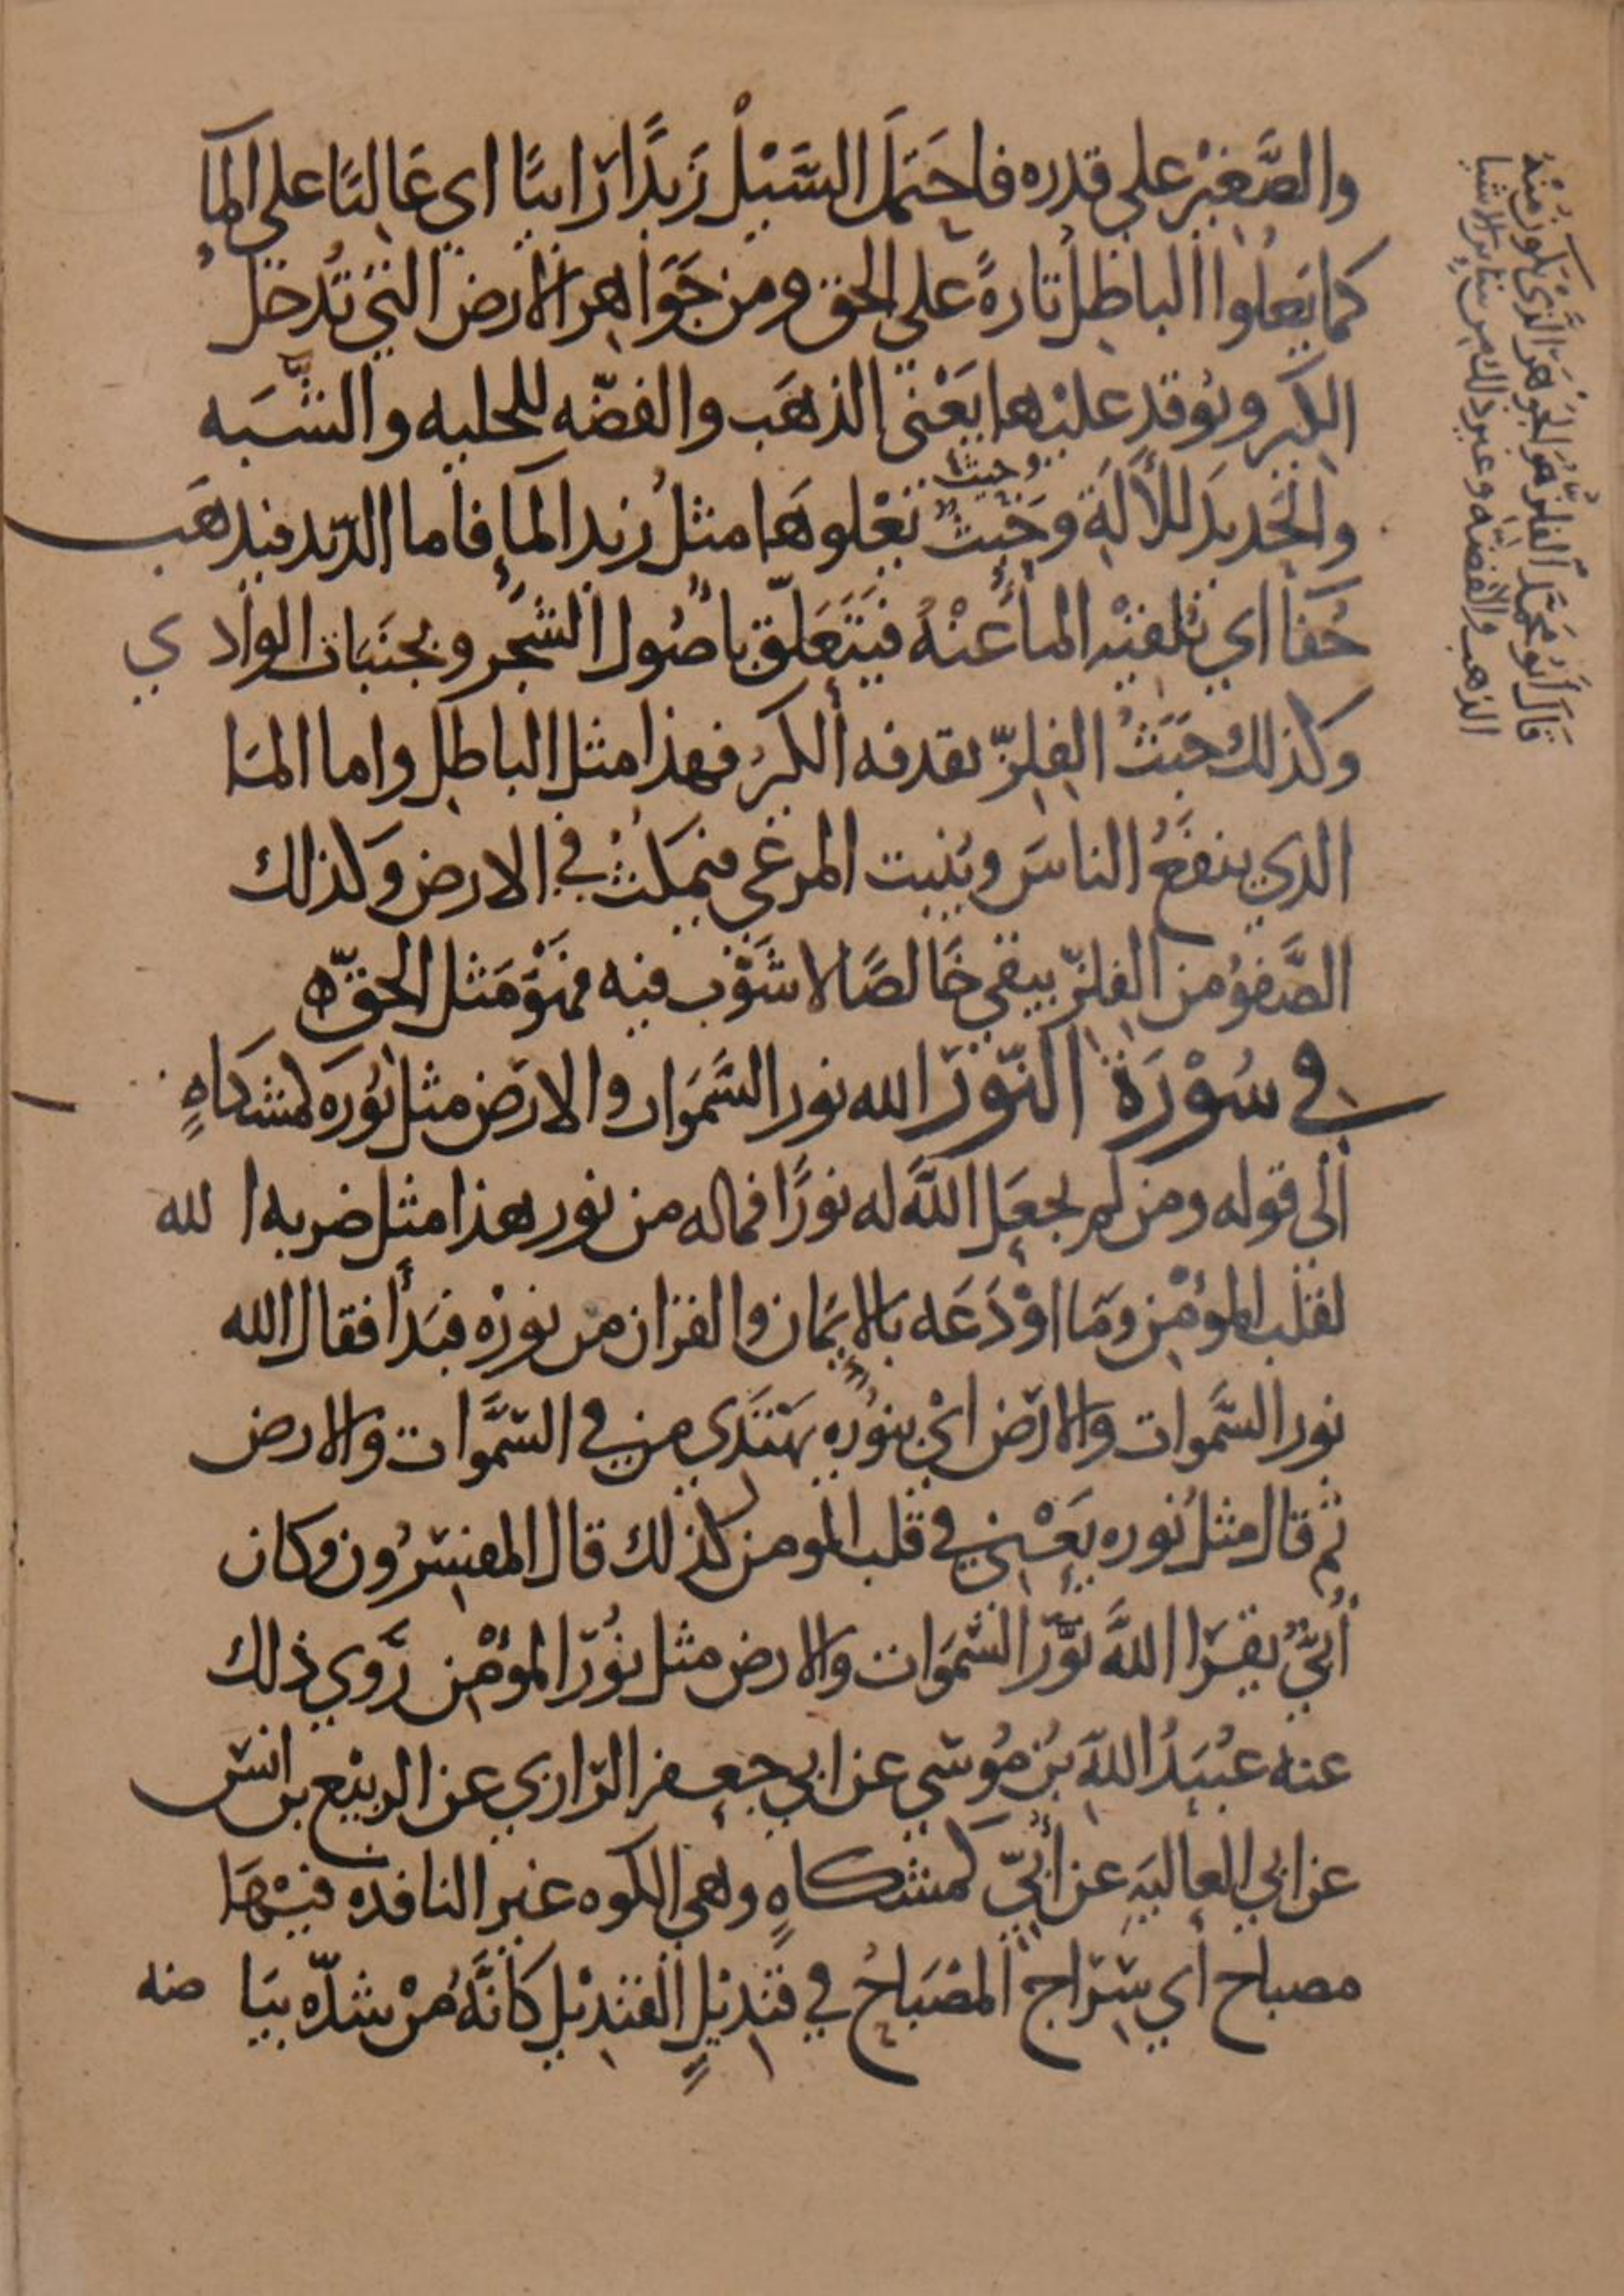 والصَّغِيْر على قدره فاحتَمَلَ السَّيْلُ زَبَدًا رَابيًا اى عَاليًا على المآء
كما يَعلُوا الباطِلُ تارةً على الحق ومن جَوَاهر الارض التي تُدخَلُ
الكِير ويُوقد عليْها يَعْني الذهَب والفضّه للحليه والشَّبَه
والحَديدَ للأَلَةِ وخَبَثٌ يَعْلوهَا مثلُ زبد المآء فاما الزّبد فيذهَب
جُفآ اي يُلقيْه المآءُ عنْهُ فيَتَعَلّق باصُول الشجَر وبجنَبَات الوادي
وكذلك خبَثُ الفِلِزّ يقذفه الكيرُ فهذا مثل الباطِل واما المآ
الذي ينفَعُ الناسَ ويُنبت المرعَى فيمكثُ في الارض وكذلك
الصَّفوُ من الفلزّ يبقى خَالصًا لا شَوْب فيه فهْوَ مَثل الحقّ ه
في سُوْرَة النّوْر الله نور السَّمَوات والارض مثل نُوره كمشكاهٍ
الى قوله ومن لم يجعَل اللهَ له نورًا فماله من نور هذا مثل ضربه الله
لقلب المؤمْن ومَا اوْدَعَه بالإيمَان والقران من نورْه فبَدأَ فقال الله
نور السَّموات والارض ايْ بنوُره يَهْتَدي من في السَّموات والارض
ثم قال مثلُ نوره يَعْني في قلب المومن كذلك قال المفسِّرُون وكان
أُبَيٌّ يقرَا اللهَ نُوْرُ السّمَوات والارض مثل نُوْر المؤمْن رَوي ذلك
عنه عُبَيْدُ اللهِ بنُ مُوسَى عن ابي جعفر الرّازي عن الربيْع بن انس
عن ابي العاليَهِ عن أُبَيّ كمشكاهٍ وهي الكوه غير النافده فيْهَا
مصباح أي سِرَاج المصْبَاحُ في قنْديْلٍ القنديْل كانَّهُ منْ شدّه بيَاضه
قال أبُو مُحَمَّد الفلزّ هُوَ الجَوْهَر الَّذِى يَكُونُ مِنْهُ
الذهب والفضّه وغير ذلك من سَائر الاشيا
خبث